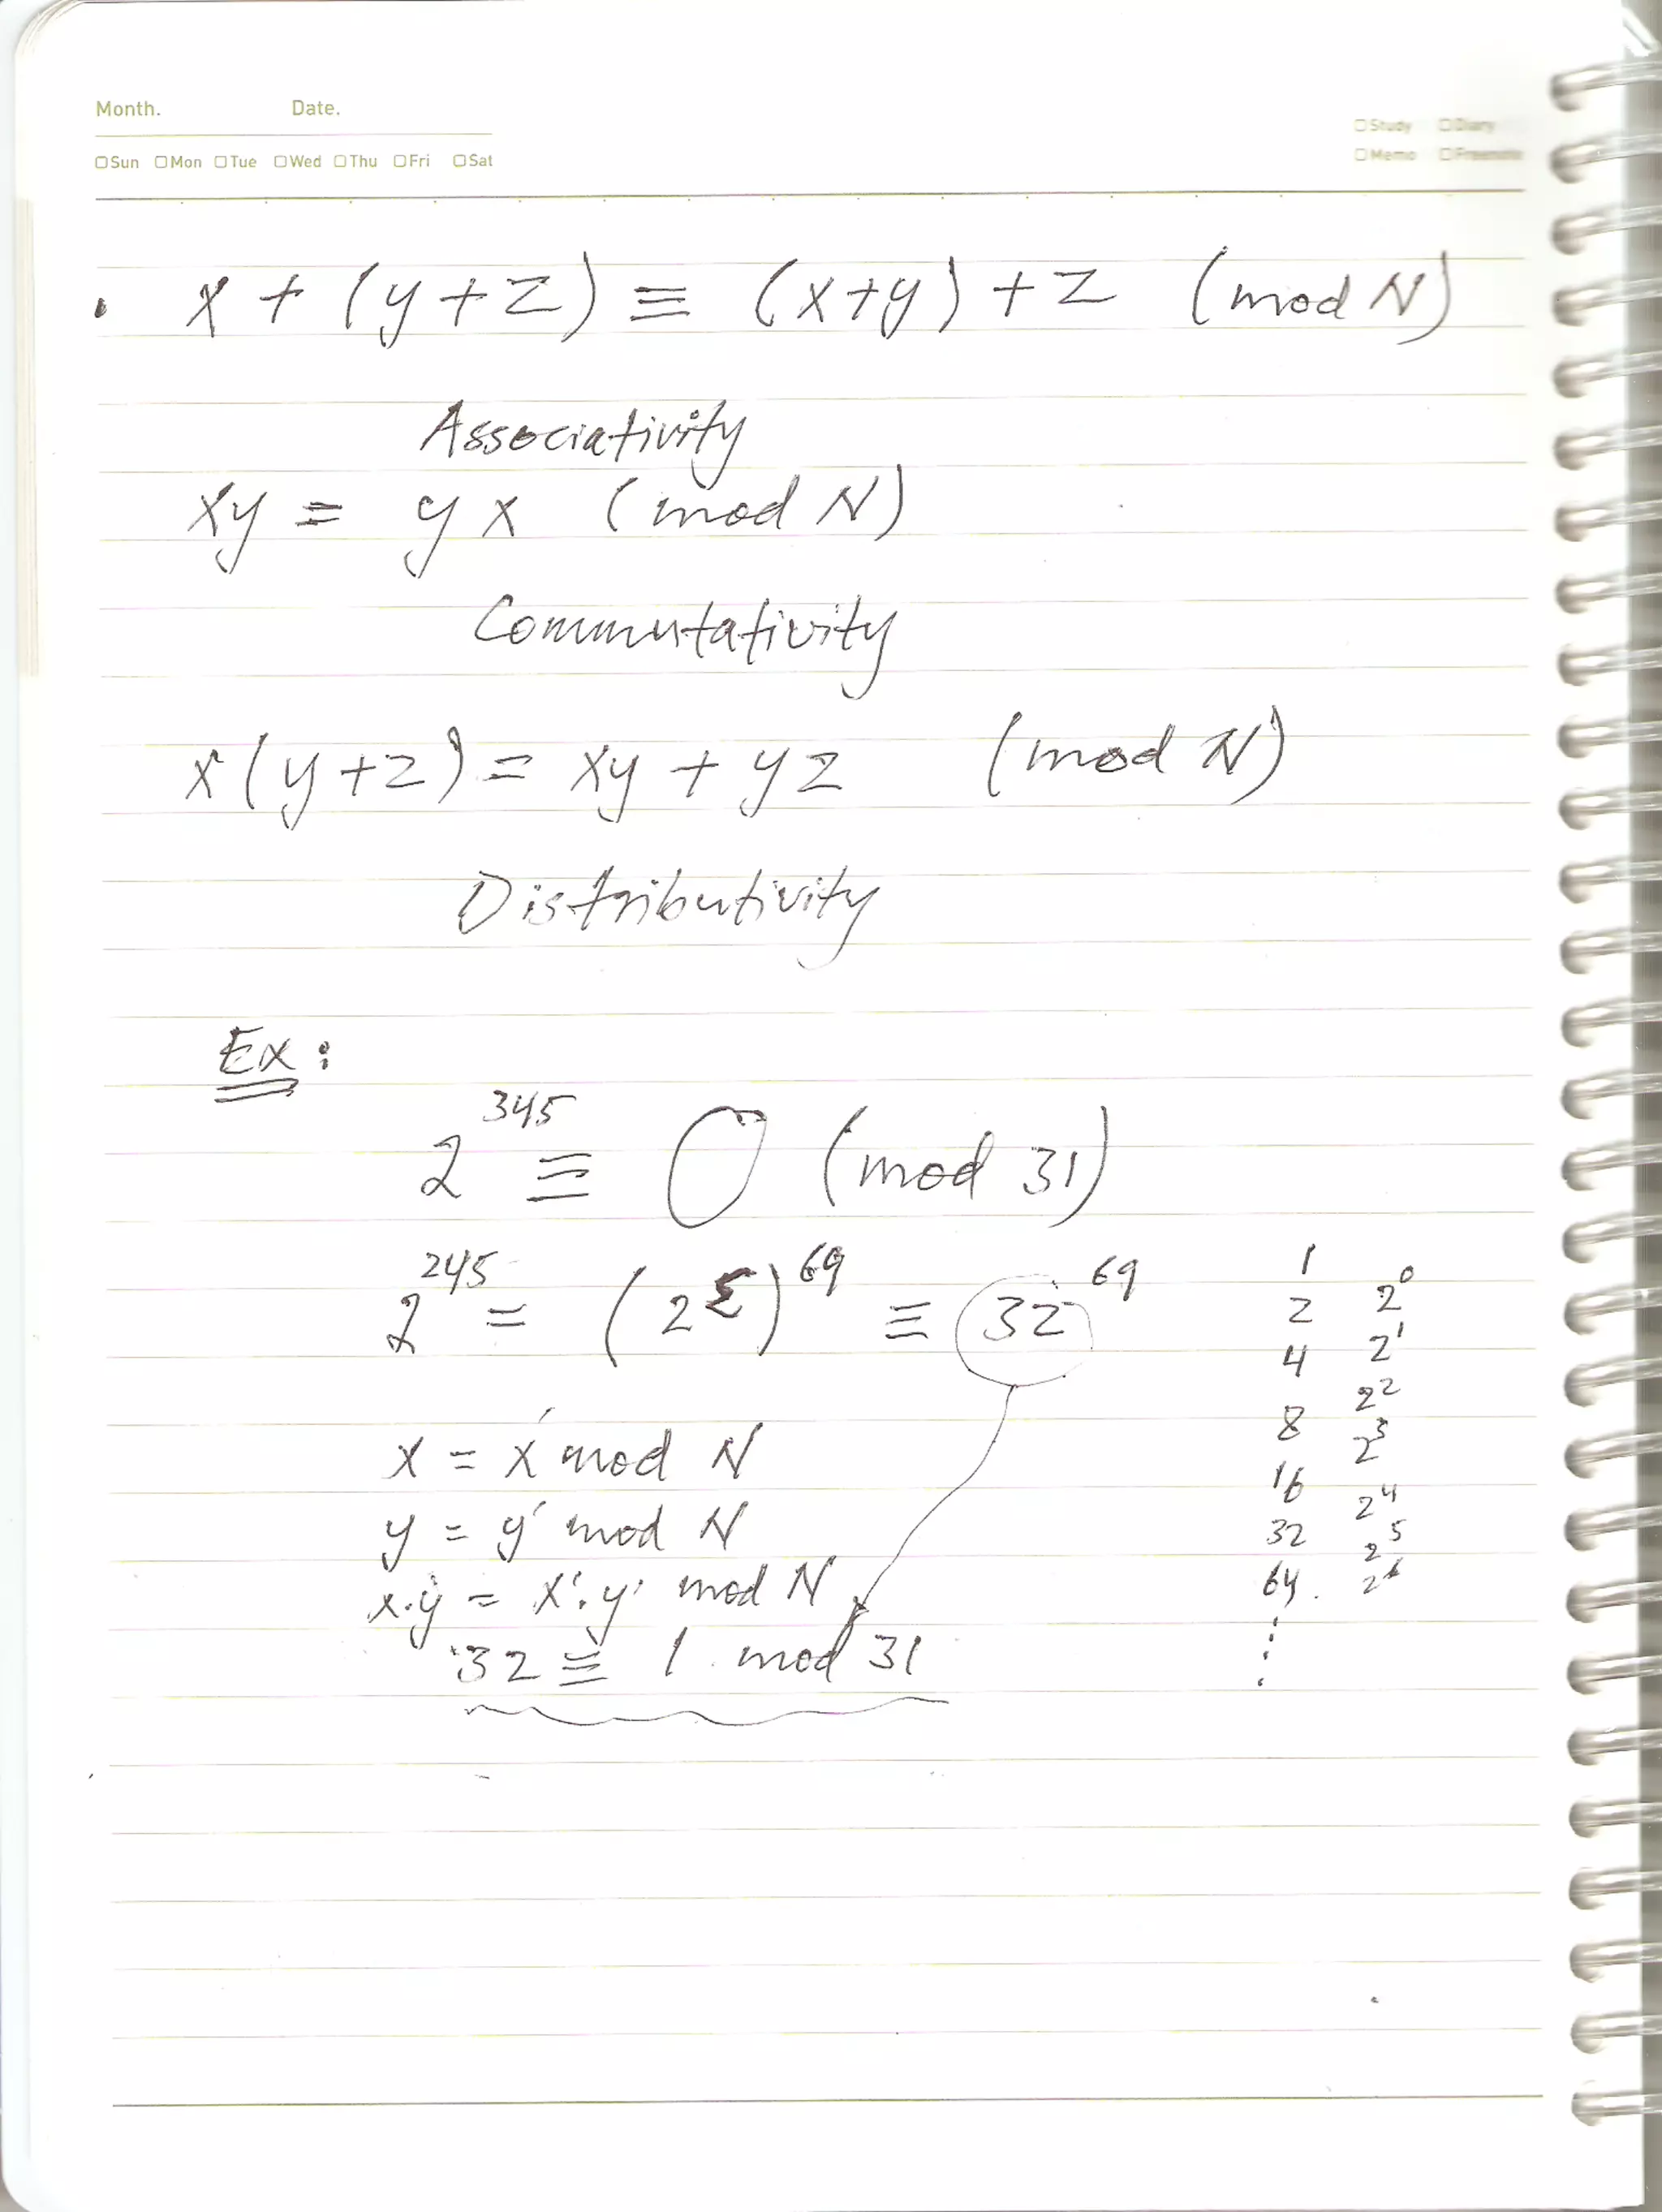 Month. Date.
□Sun □Mon □Tue □Wed □Thu □Fri □Sat
□Study □Diary
□Memo □Freenote
• x + (y + z) ≡ (x+y) + z (mod N)
Associativity
xy = yx (mod N)
Commutativity
x(y+z) = xy + yz (mod N)
Distributivity
Ex:
2^345 ≡ 0 (mod 31)
2^245 = (2^5)^69 ≡ 32^69
x = x' mod N
y = y' mod N
x·y = x'·y' mod N
32 ≡ 1 mod 31
1
2 2^0
4 2^1
8 2^2
2^3
16 2^4
32 2^5
64. 2^6
⋮